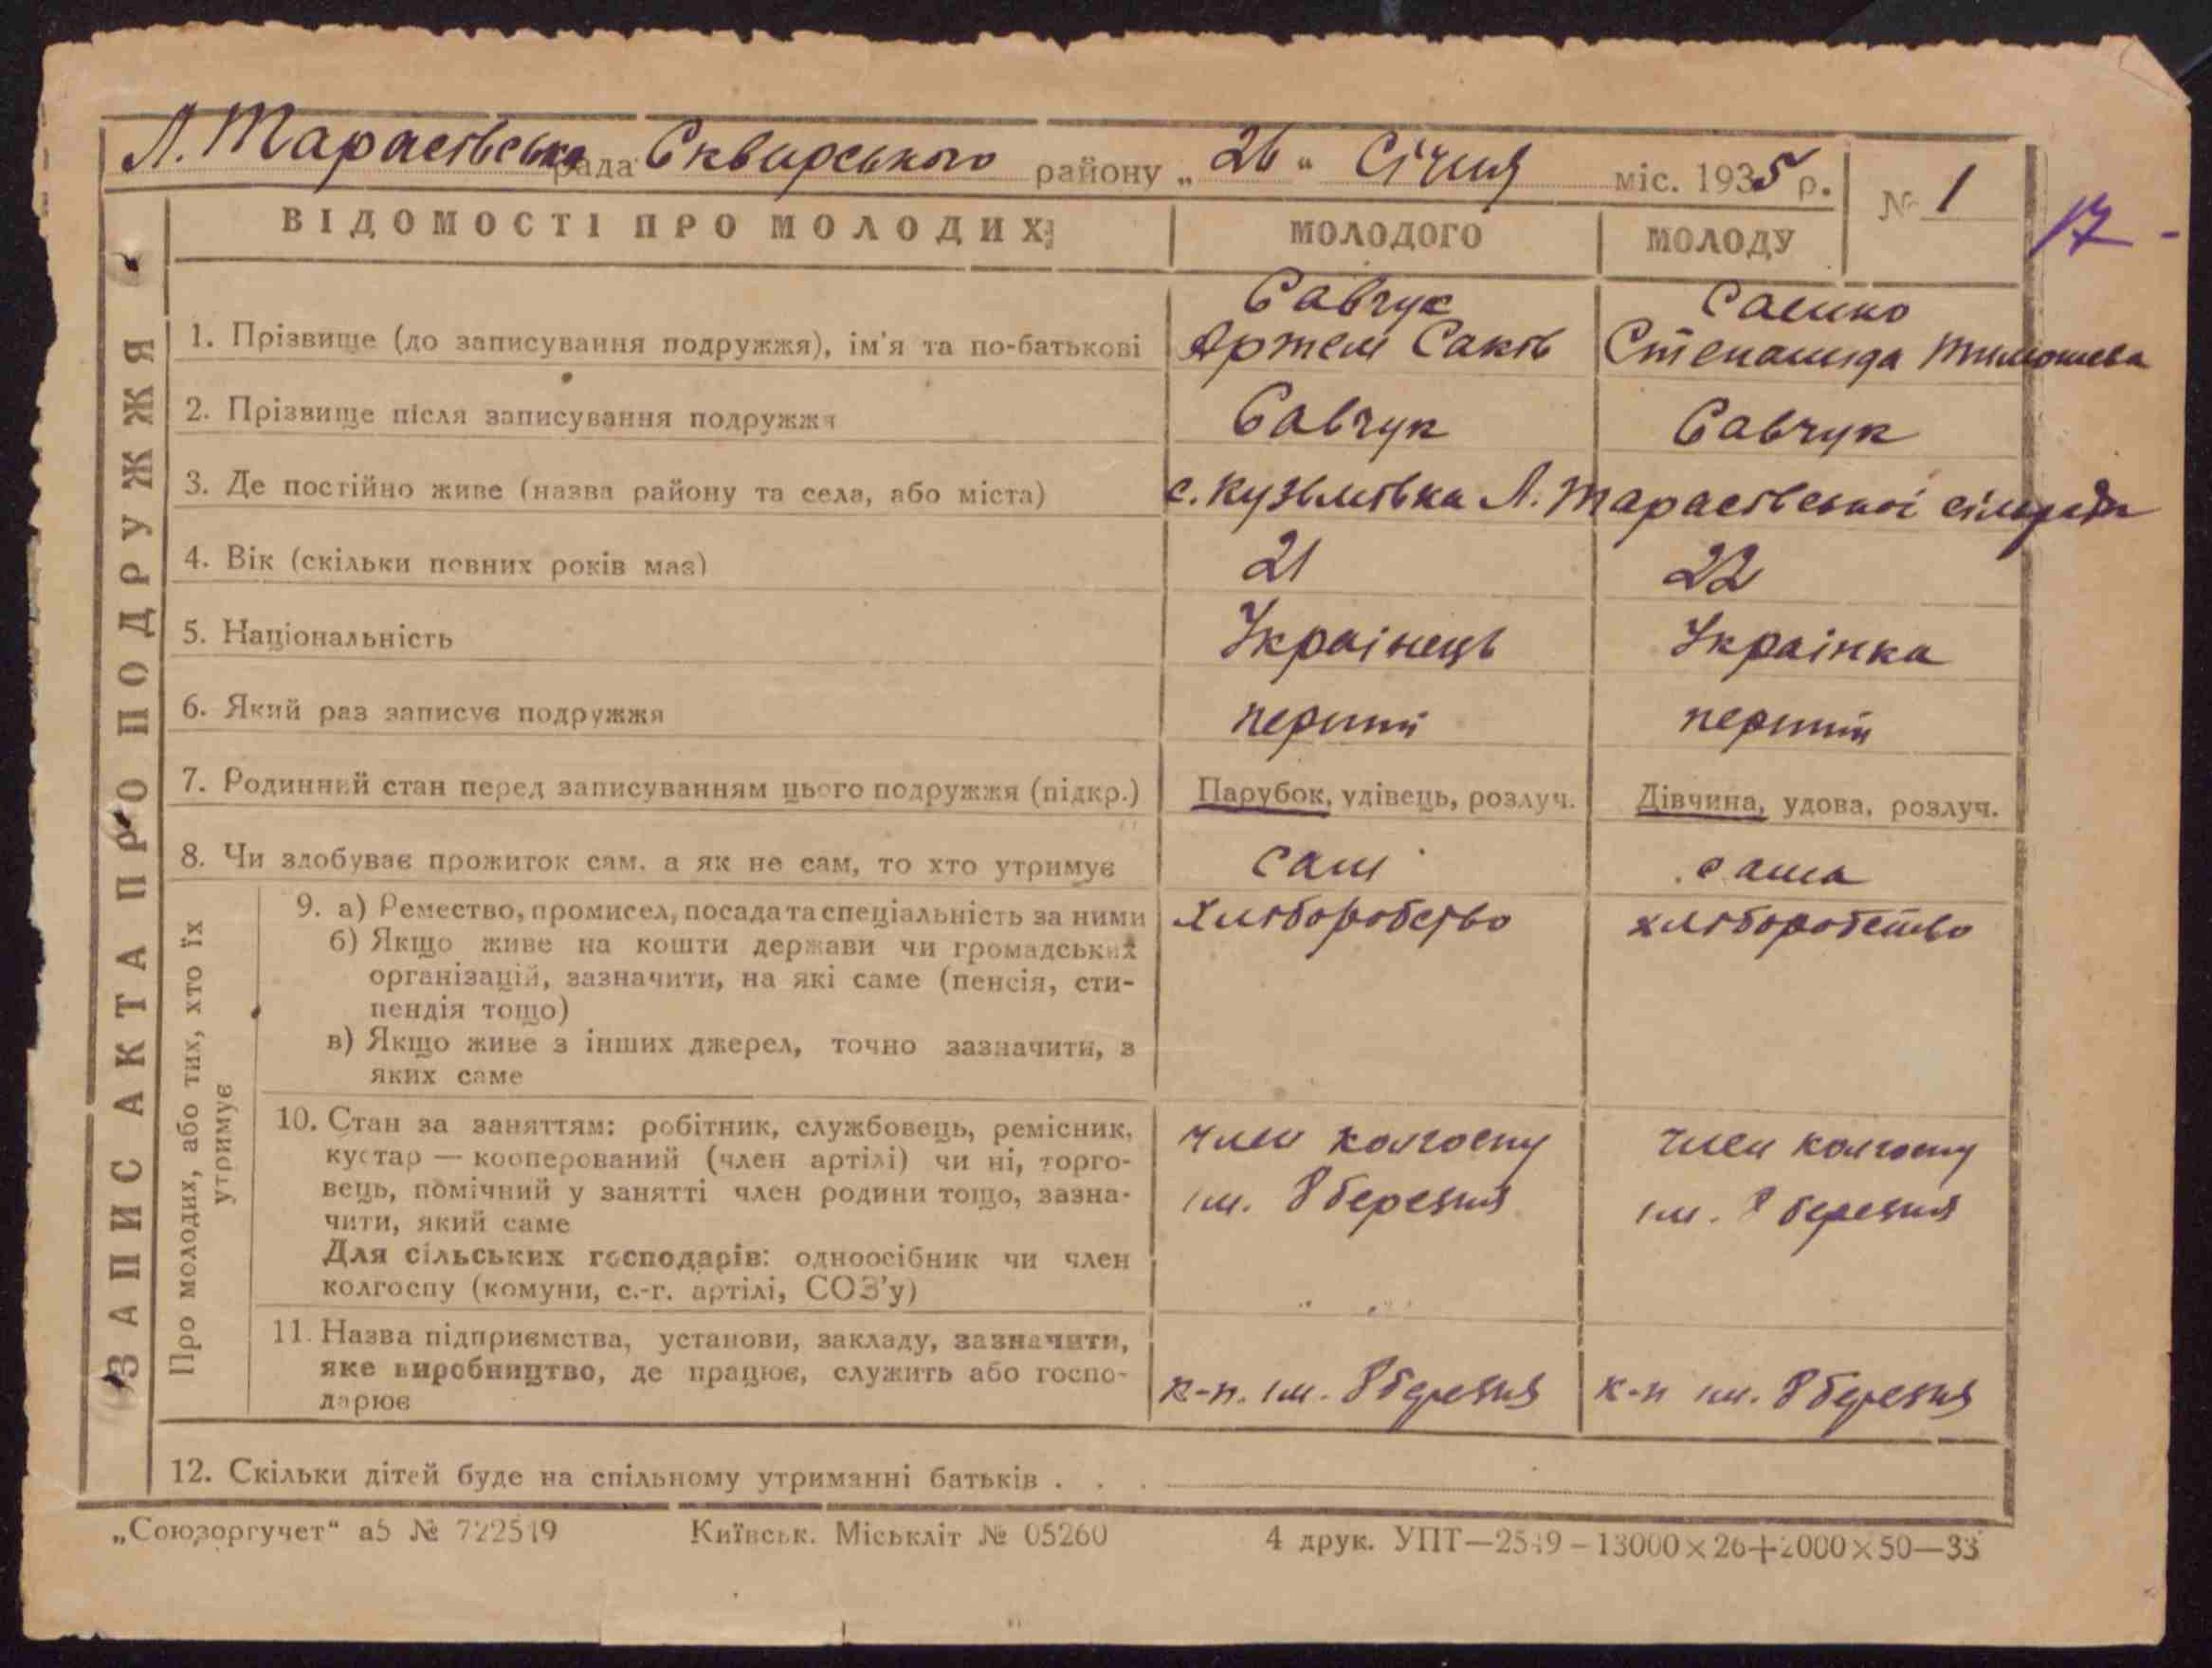 Л. Тарасівська рада Сквирського району „ 26 “ Січня міс. 1935 р. № 1
17 -
ЗАПИС АКТА ПРО ПОДРУЖЖЯ
ВІДОМОСТІ ПРО МОЛОДИХ МОЛОДОГО МОЛОДУ
1. Прізвище (до записування подружжя), ім'я та по-батькові
Савчук
Артем Саків
Саенко
Степанида Тимошева
2. Прізвище після записування подружжя Савчук Савчук
3. Де постійно живе (назва району та села, або міста) с. Кузьмівка Л. Тарасівської сільради
4. Вік (скільки повних років має) 21 22
5. Національність Українець Українка
6. Який раз записує подружжя перший перший
7. Родинний стан перед записуванням цього подружжя (підкр.) Парубок, удівець, розлуч. Дівчина, удова, розлуч.
8. Чи здобуває прожиток сам, а як не сам, то хто утримує сам сама
Про молодих, або тих, хто їх
утримує
9. а) Ремество, промисел, посада та спеціальність за ними хліборобство хліборобство
б) Якщо живе на кошти держави чи громадських
організацій, зазначити, на які саме (пенсія, сти-
пендія тощо)
в) Якщо живе з інших джерел, точно зазначити, з
яких саме
10. Стан за заняттям: робітник, службовець, ремісник, член колгоспу член колгоспу
кустар — кооперований (член артілі) чи ні, торго-
вець, помічний у занятті член родини тощо, зазна- ім. 8 березня ім. 8 березня
чити, який саме
Для сільських господарів: одноосібник чи член
колгоспу (комуни, с.-г. артілі, СОЗ'у)
11. Назва підприємства, установи, закладу, зазначити,
яке виробництво, де працює, служить або госпо- к-п. ім. 8 березня к-п ім. 8 березня
дарює
12. Скільки дітей буде на спільному утриманні батьків . . .
„Союзоргучет“ а5 № 722519 Київськ. Міськліт № 05260 4 друк. УПТ—2549–13000×26+2000×50—33